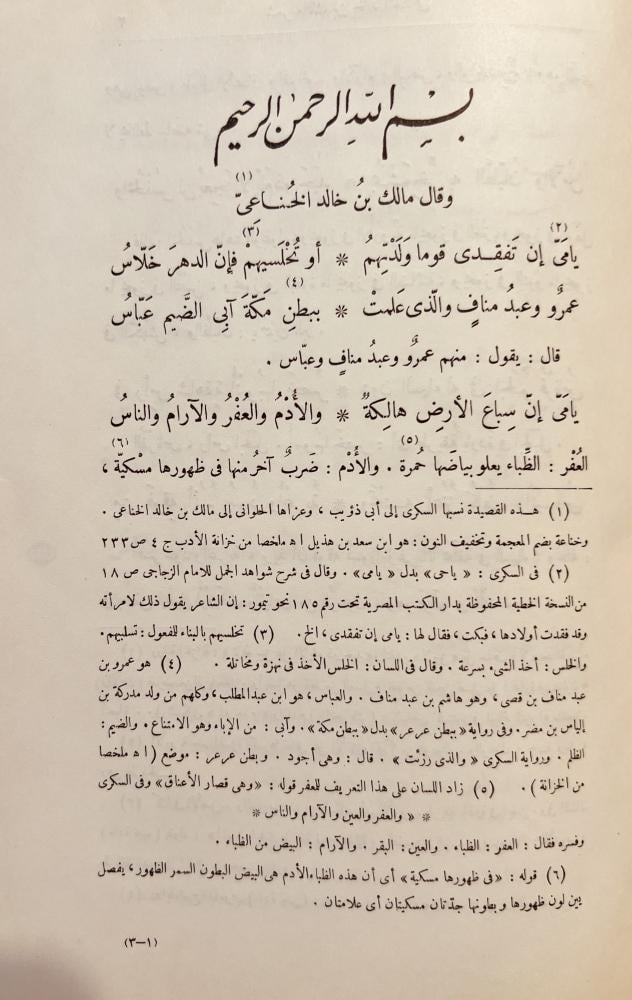 بسم الله الرحمن الرحيم
وقال مالك بنُ خالد الخُناعىّ (١)
يامَىّ (٢) إن تَفقِدى قوما وَلَدْتِهِمُ * أو تُخْلَسِيهِمْ (٣) فإنّ الدهرَ خَلّاسُ
عمرٌو وعبدُ منافٍ والّذى عَلمتْ * ببطنِ مَكّةَ (٤) آبِى الضَّيمِ عَبّاسُ
قال : يقول : منهم عمرٌو وعبدُ منافٍ وعبّاس .
يامَىّ إنّ سِباعَ الأرضِ هالِكةٌ * والأُدْمُ والعُفْرُ والآرامُ والناسُ
العُفْر : الظِّباء يعلو بياضَها حُمرة (٥) . والأُدْم : ضَربٌ آخرُ منها فى ظهورها مسْكيّة (٦) ،
(١) هذه القصيدة نسبها السكرى إلى أبى ذؤيب ، وعزاها الحلوانى إلى مالك بن خالد الخناعى .
وخناعة بضم المعجمة وتخفيف النون : هو ابن سعد بن هذيل اﻫ ملخصا من خزانة الأدب ج ٤ ص ٢٣٣
(٢) فى السكرى : « ياحى » بدل « يامى » . وقال فى شرح شواهد الجمل للامام الزجاجى ص ١٨
من النسخة الخطية المحفوظة بدار الكتب المصرية تحت رقم ١٨٥ نحو تيمور : إن الشاعر يقول ذلك لامرأته
وقد فقدت أولادها ، فبكت ، فقال لها : يامى إن تفقدى ، الخ . (٣) تخلسيهم بالبناء للفعول : تسلبيهم .
والخلس : أخذ الشىء بسرعة . وقال فى اللسان : الخلس الأخذ فى نهزة ومخاتلة . (٤) هو عمرو بن
عبد مناف بن قصى ، وهو هاشم بن عبد مناف . والعباس ، هو ابن عبد المطلب ، وكلهم من ولد مدركة بن
إلياس بن مضر . وفى رواية « ببطن عرعر » بدل « ببطن مكة » . وآبى : من الإباء وهو الامتناع . والضيم :
الظلم . ورواية السكرى « والذى رزئت » . قال : وهى أجود . وبطن عرعر : موضع ( اﻫ ملخصا
من الخزانة ) . (٥) زاد اللسان على هذا التعريف للعفر قوله : « وهى قصار الأعناق » وفى السكرى
* « والعفر والعين والآرام والناس *
وفسره فقال : العفر : الظباء . والعين : البقر . والآرام : البيض من الظباء .
(٦) قوله : « فى ظهورها مسكية » أى أن هذه الظباء الأدم هى البيض البطون السمر الظهور ، يفصل
بين لون ظهورها وبطونها جدّتان مسكيتان أى علامتان .
(٣-١)